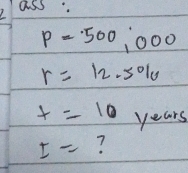 2) ass :
P = 500,000
r = 12.5%
t = 10 years
I = ?